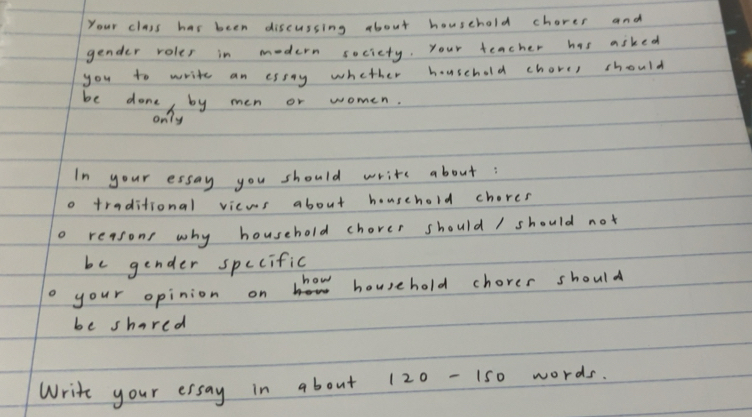 Your class has been discussing about household chores and
gender roles in modern society. Your teacher has asked
you to write an essay whether household chores should
be done only by men or women.
In your essay you should write about :
o traditional views about household chores
o reasons why household chores should / should not
be gender specific
o your opinion on how household chores should
be shared
Write your essay in about 120 - 150 words.